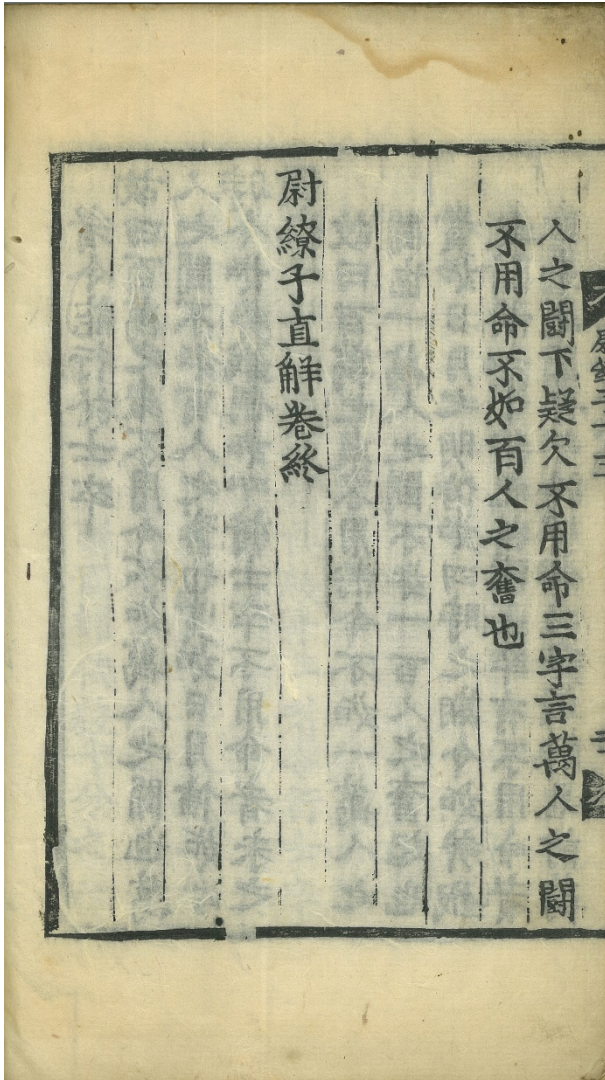 人之闘下疑欠不用命三字言萬人之闘
不用命不如百人之奮也
尉繚子直解卷終